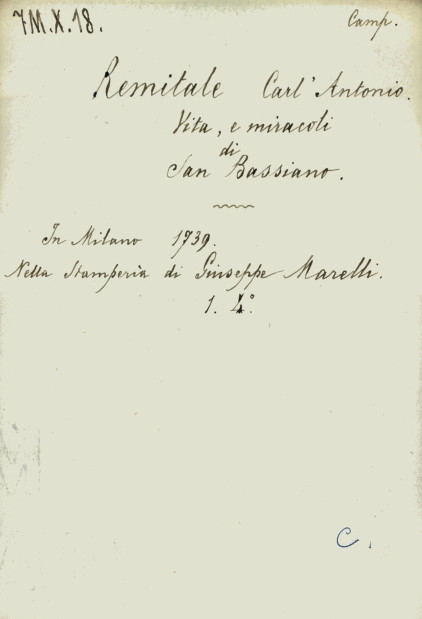 7M.X.18.
Camp.
Remitale Carl'Antonio.
Vita, e miracoli
di
San Bassiano.
In Milano 1739.
Nella Stamperia di Giuseppe Marelli.
1. 4.°
C.